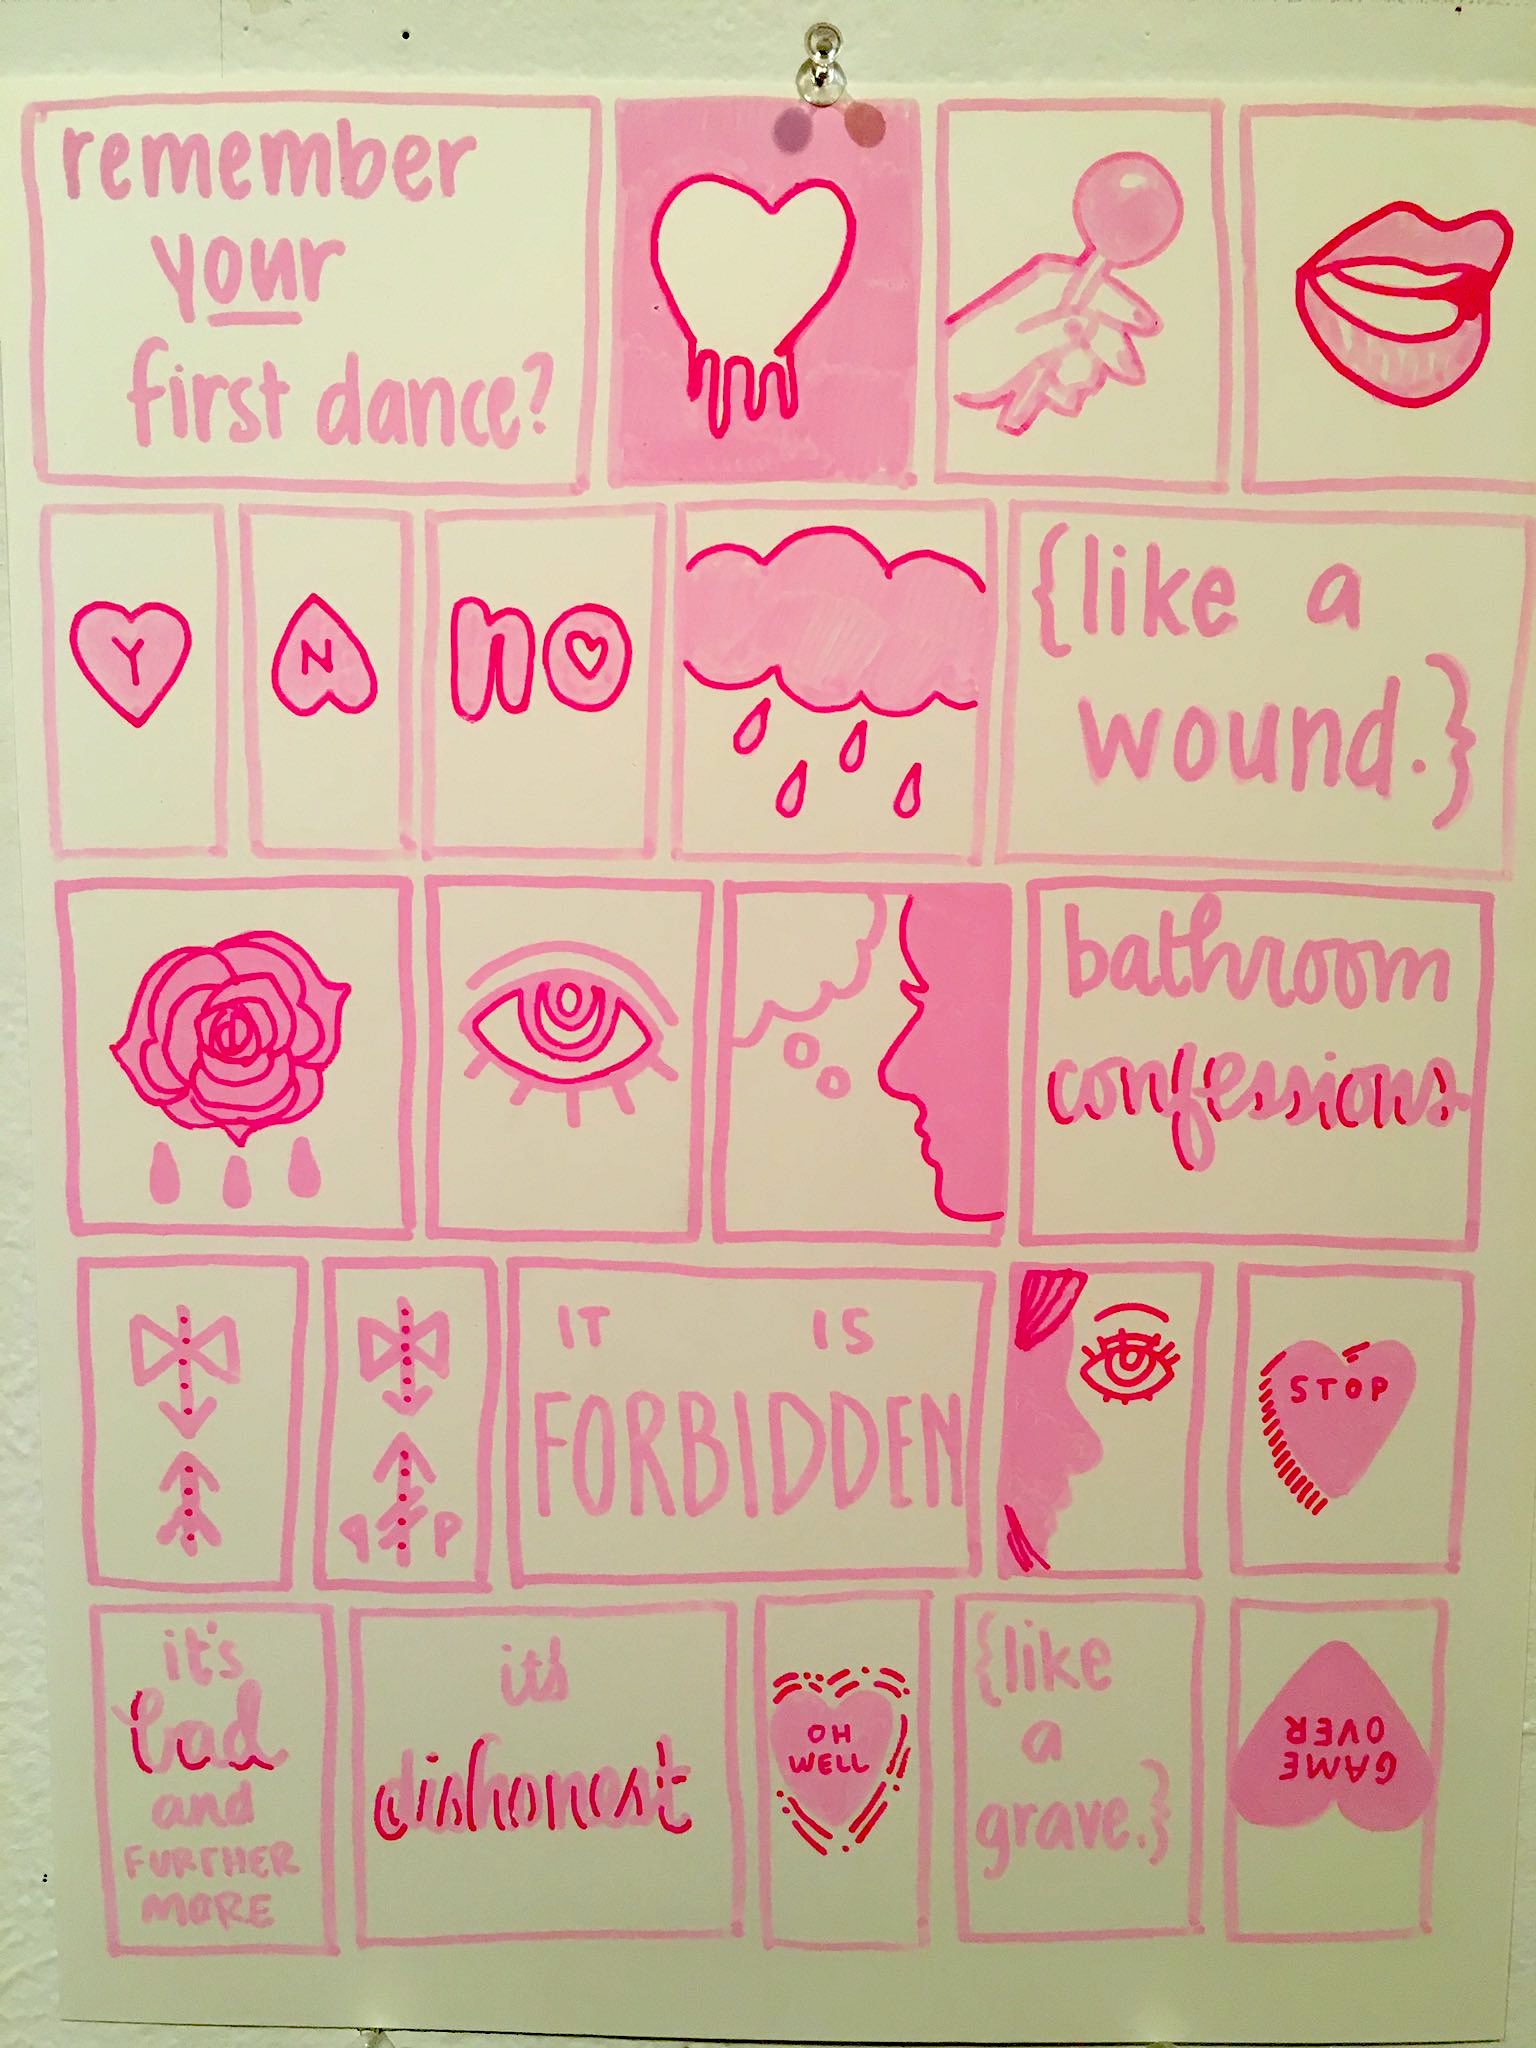 remember
your
first dance?
Y
N
no
{like a
wound.}
bathroom
confessions.
IT IS
FORBIDDEN
STOP
it's
bad
and
FURTHER
MORE
it's
dishonest
OH
WELL
{like
a
grave.}
GAME
OVER